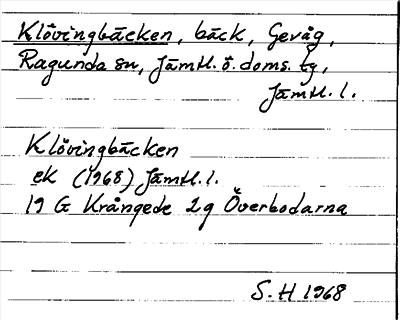 Klövingbäcken, bäck, Gevåg,
Ragunda sn, Jämtl. ö. doms. tg,
Jämtl. l.
Klövingbäcken
ek (1968) Jämtl. l.
19 G Krångede 2g Överbodarna
S. H 1968